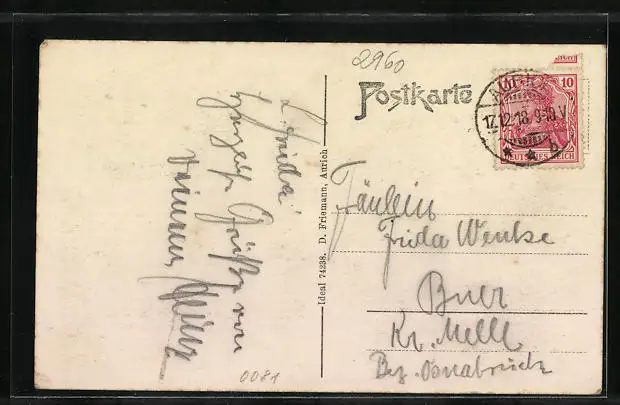 2960
Postkarte
AURICH
17.12.18. 9-10.V
* * b
10
DEUTSCHES REICH
L. Frida!
Herzl. Grüße von
Deinem Heinz
Ideal 74238. D. Friemann, Aurich
Fräulein
Frida Wentze
Buer
Kr. Melle
Bez. Osnabrück
0081